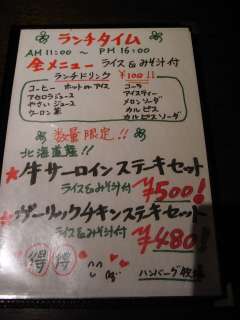 ランチタイム
AM 11:00 ～ PM 15:00
全メニュー ライス&みそ汁付
ランチドリンク ¥100!!
コーヒー ホットorアイス コーラ
アセロラジュース アイスティー
やさいジュース メロンソーダ
ウーロン茶 カルピス
カルピスソーダ
数量限定!!
北海道産!!
★牛サーロインステーキセット
ライス&みそ汁付 ¥500!
★ガーリックチキンステーキセット
ライス&みそ汁付 ¥480!
得 得
ハンバーグ牧場